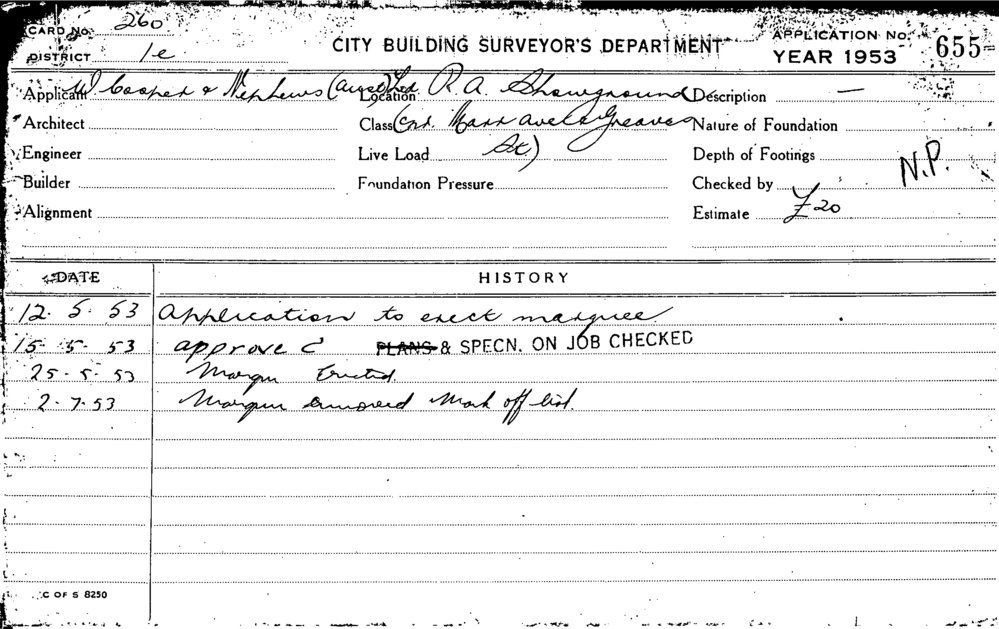 CARD No. 260
DISTRICT 1e
CITY BUILDING SURVEYOR'S DEPARTMENT
APPLICATION No. 655
YEAR 1953
Applicant W Cooper & Nephews (Aust) Ltd Location R. A. Showground Description —
Architect Class (Cnr. Mark Ave & Greaves Nature of Foundation
Engineer Live Load St.) Depth of Footings N.P.
Builder Foundation Pressure Checked by
Alignment Estimate £20
DATE HISTORY
12. 5. 53 Application to erect marquee
15. 5. 53 approve C PLANS & SPECN. ON JOB CHECKED
25. 5. 53 Marqu Erected.
2. 7. 53 Marqu removed Mark off list.
C OF S 8250